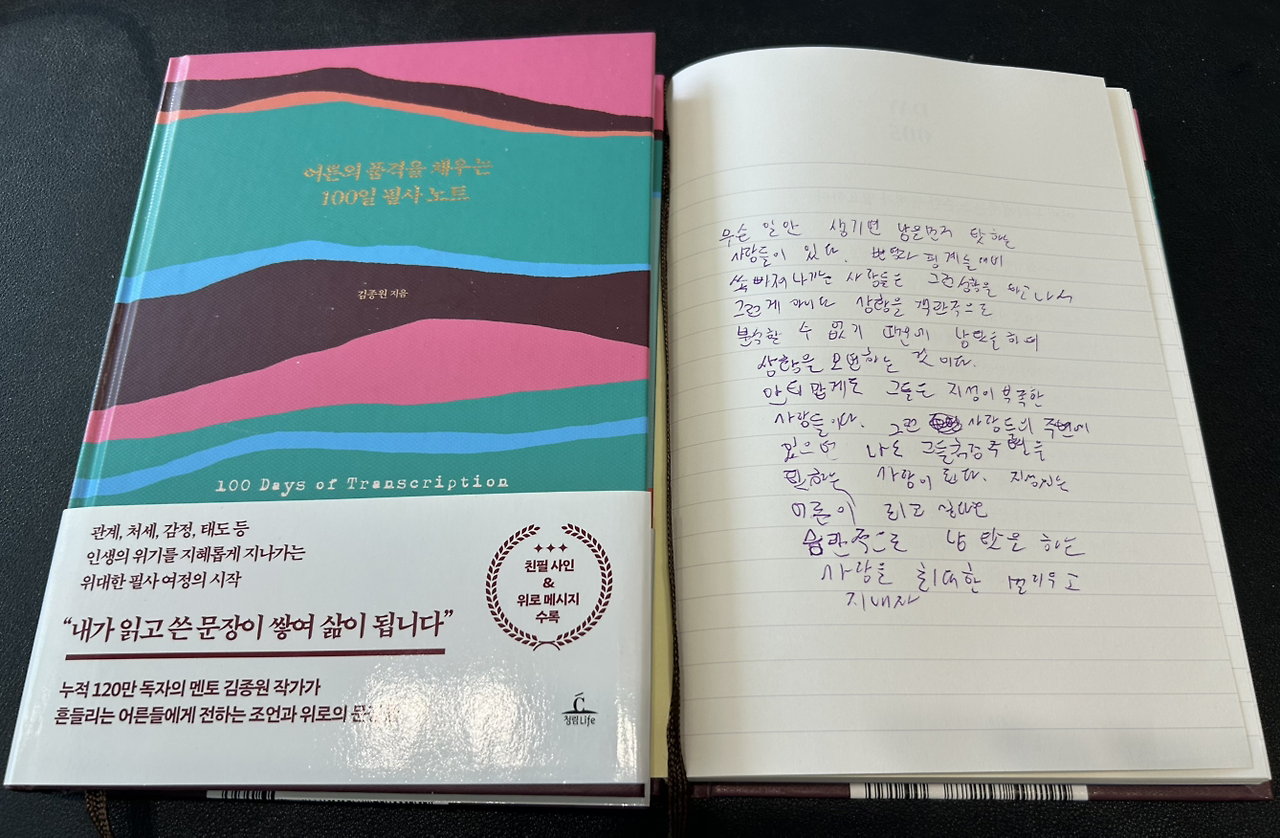 어른의 품격을 채우는
100일 필사 노트
김종원 지음
100 Days of Transcription
관계, 처세, 감정, 태도 등
인생의 위기를 지혜롭게 지나가는
위대한 필사 여정의 시작
“내가 읽고 쓴 문장이 쌓여 삶이 됩니다”
누적 120만 독자의 멘토 김종원 작가가
흔들리는 어른들에게 전하는 조언과 위로의
친필 사인
&
위로 메시지
수록
청림Life
무슨 일만 생기면 남을먼저 탓 하는
사람들이 있다. 변명과 핑계를 대며
쏙 빠져나가는 사람들은 그런
그런게 아니다 상황을 객관적으로
분석할 수 없기 때문에 남탓을하며
상황을 모면하는 것 이다.
안타깝게도 그들은 지성이부족한
사람들이다. 그런 사람들의 주변에
있으면 나도
탓하는 사람이 된다. 지성있는
어른이 되고 싶다면
습관적으로 남 탓을 하는
사람을 최대한 멀리두고
지내자